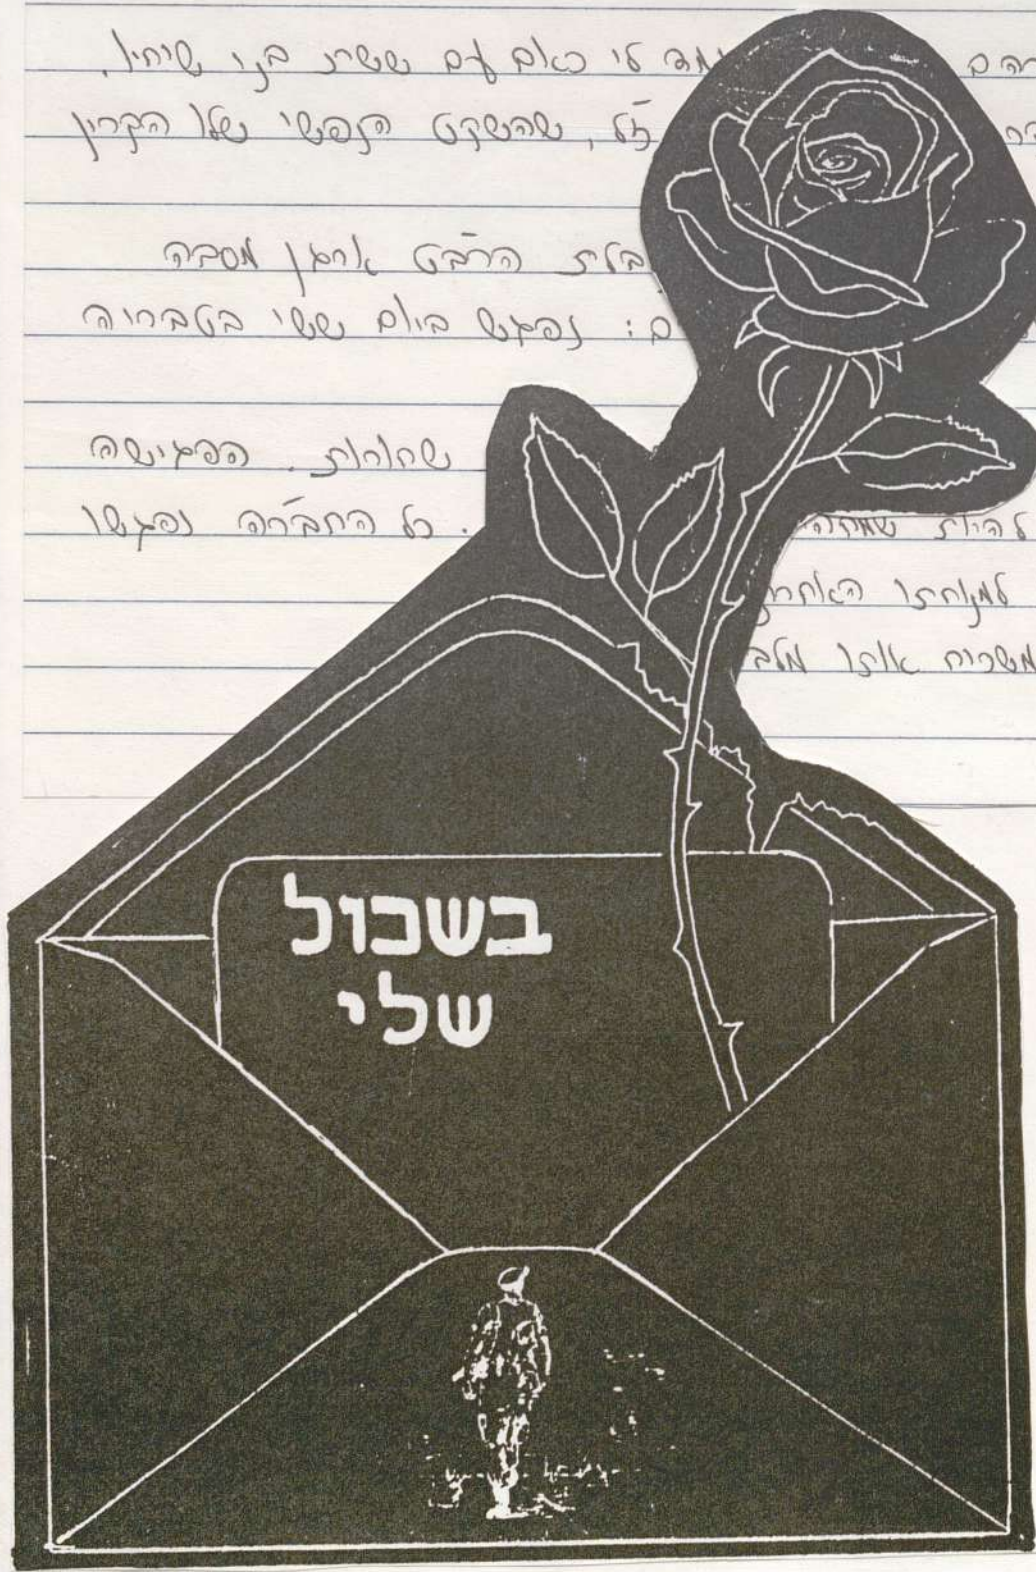 מד לי כאב עם ששת בניו שיחיו.
ז״ל, שהשקט הנפשי שלו הקרין
בלת הרב״ט ארגן מסיבה
ם: נפגש ביום ששי בטבריה
שחורות. הפגישה
להיות שמחה . כל החבר׳ה נפגשו
למנוחתו האחרונ
משכיח אותו מלב
בשכול
שלי